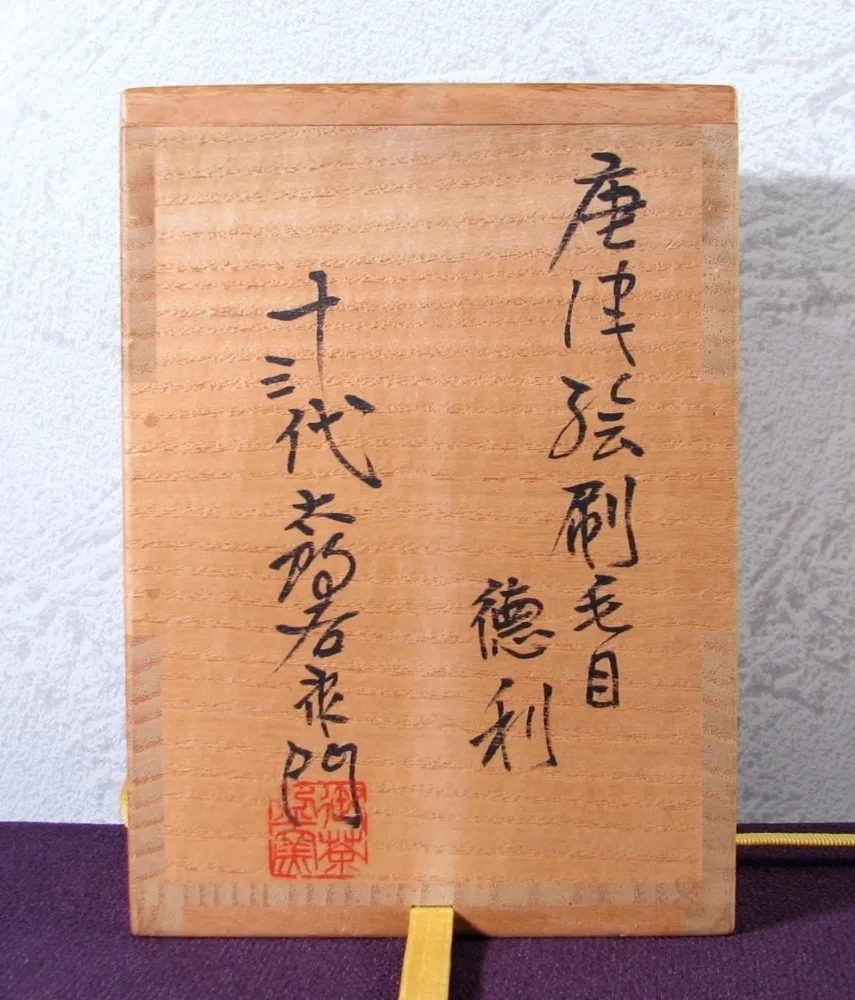 唐津絵刷毛目
徳利
十三代太郎右衛門
御茶
盌窯